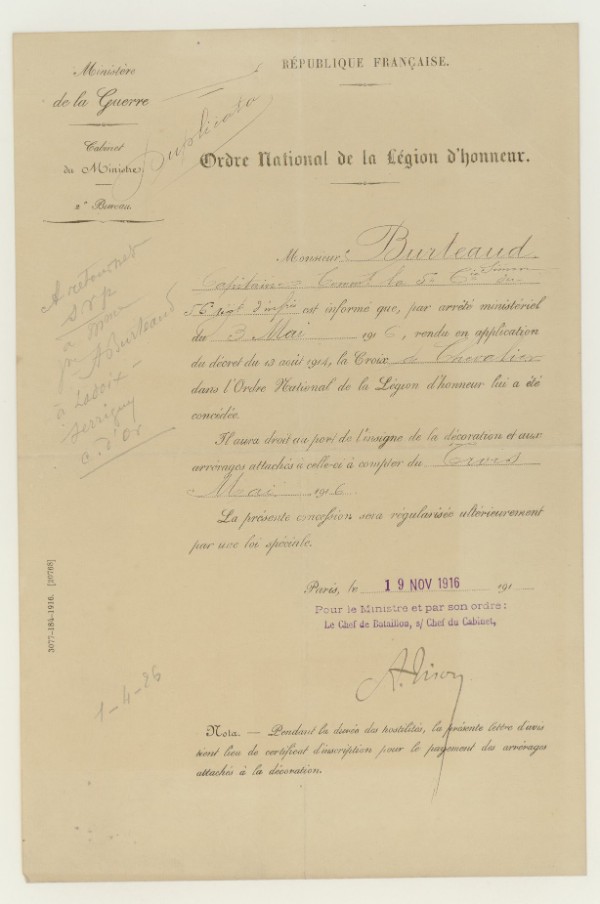 Ministère
de la Guerre
Cabinet
du Ministre
2e Bureau.
Duplicata
RÉPUBLIQUE FRANÇAISE.
Ordre National de la Légion d'honneur.
Monsieur Burteaud
Capitaine Commt la 5e Cie du
56 Régt d'infrie est informé que, par arrêté ministériel
du 3 Mai 1916, rendu en application
du décret du 13 août 1914, la Croix de Chevalier
dans l'Ordre National de la Légion d'honneur lui a été
concédée.
Il aura droit au port de l'insigne de la décoration et aux
arrérages attachés à celle-ci à compter du Trois
Mai 1916.
La présente concession sera régularisée ultérieurement
par une loi spéciale.
Paris, le 19 NOV 1916 191
Pour le Ministre et par son ordre:
Le Chef de Bataillon, s/ Chef du Cabinet,
Nota. — Pendant la durée des hostilités, la présente lettre d'avis
tient lieu de certificat d'inscription pour le payement des arrérages
attachés à la décoration.
A retourner
S.V.P
à Mme
A Burteaud
à Ladoix-
Serrigny
C. d'Or
3077-184-1916. [20768]
1-4-26